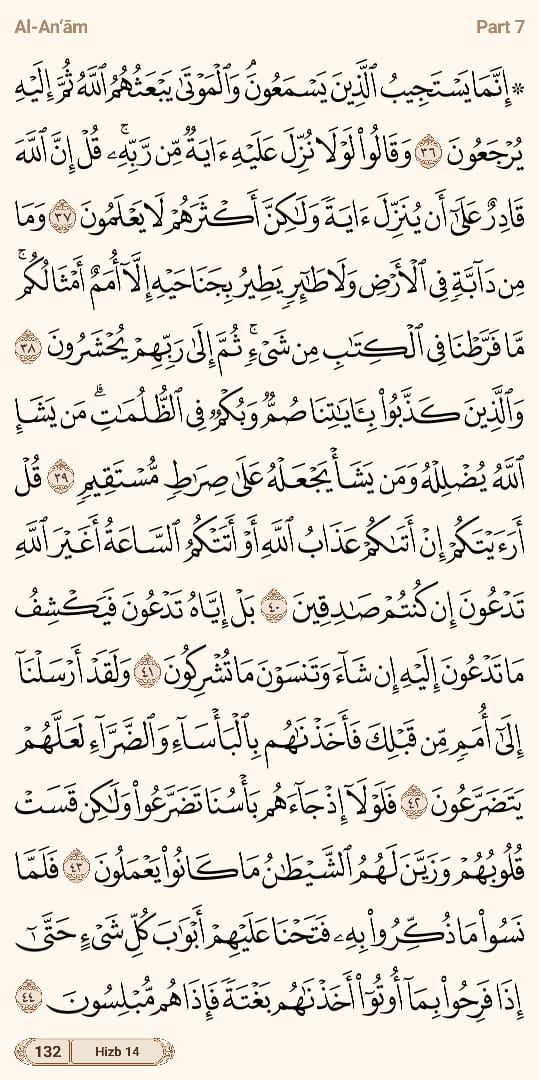 Al-An‘ām
Part 7
۞ إِنَّمَا يَسْتَجِيبُ ٱلَّذِينَ يَسْمَعُونَۘ وَٱلْمَوْتَىٰ يَبْعَثُهُمُ ٱللَّهُ ثُمَّ إِلَيْهِ
يُرْجَعُونَ ٣٦ وَقَالُوا۟ لَوْلَا نُزِّلَ عَلَيْهِ ءَايَةٌ مِّن رَّبِّهِۦۚ قُلْ إِنَّ ٱللَّهَ
قَادِرٌ عَلَىٰٓ أَن يُنَزِّلَ ءَايَةً وَلَٰكِنَّ أَكْثَرَهُمْ لَا يَعْلَمُونَ ٣٧ وَمَا
مِن دَآبَّةٍ فِى ٱلْأَرْضِ وَلَا طَٰٓئِرٍ يَطِيرُ بِجَنَاحَيْهِ إِلَّآ أُمَمٌ أَمْثَالُكُمۚ
مَّا فَرَّطْنَا فِى ٱلْكِتَٰبِ مِن شَىْءٍۚ ثُمَّ إِلَىٰ رَبِّهِمْ يُحْشَرُونَ ٣٨
وَٱلَّذِينَ كَذَّبُوا۟ بِـَٔايَٰتِنَا صُمٌّ وَبُكْمٌ فِى ٱلظُّلُمَٰتِۗ مَن يَشَإِ
ٱللَّهُ يُضْلِلْهُ وَمَن يَشَأْ يَجْعَلْهُ عَلَىٰ صِرَٰطٍ مُّسْتَقِيمٍ ٣٩ قُلْ
أَرَءَيْتَكُمْ إِنْ أَتَىٰكُمْ عَذَابُ ٱللَّهِ أَوْ أَتَتْكُمُ ٱلسَّاعَةُ أَغَيْرَ ٱللَّهِ
تَدْعُونَ إِن كُنتُمْ صَٰدِقِينَ ٤٠ بَلْ إِيَّاهُ تَدْعُونَ فَيَكْشِفُ
مَا تَدْعُونَ إِلَيْهِ إِن شَآءَ وَتَنسَوْنَ مَا تُشْرِكُونَ ٤١ وَلَقَدْ أَرْسَلْنَآ
إِلَىٰٓ أُمَمٍ مِّن قَبْلِكَ فَأَخَذْنَٰهُم بِٱلْبَأْسَآءِ وَٱلضَّرَّآءِ لَعَلَّهُمْ
يَتَضَرَّعُونَ ٤٢ فَلَوْلَآ إِذْ جَآءَهُم بَأْسُنَا تَضَرَّعُوا۟ وَلَٰكِن قَسَتْ
قُلُوبُهُمْ وَزَيَّنَ لَهُمُ ٱلشَّيْطَٰنُ مَا كَانُوا۟ يَعْمَلُونَ ٤٣ فَلَمَّا
نَسُوا۟ مَا ذُكِّرُوا۟ بِهِۦ فَتَحْنَا عَلَيْهِمْ أَبْوَٰبَ كُلِّ شَىْءٍ حَتَّىٰٓ
إِذَا فَرِحُوا۟ بِمَآ أُوتُوٓا۟ أَخَذْنَٰهُم بَغْتَةً فَإِذَا هُم مُّبْلِسُونَ ٤٤
132
Hizb 14